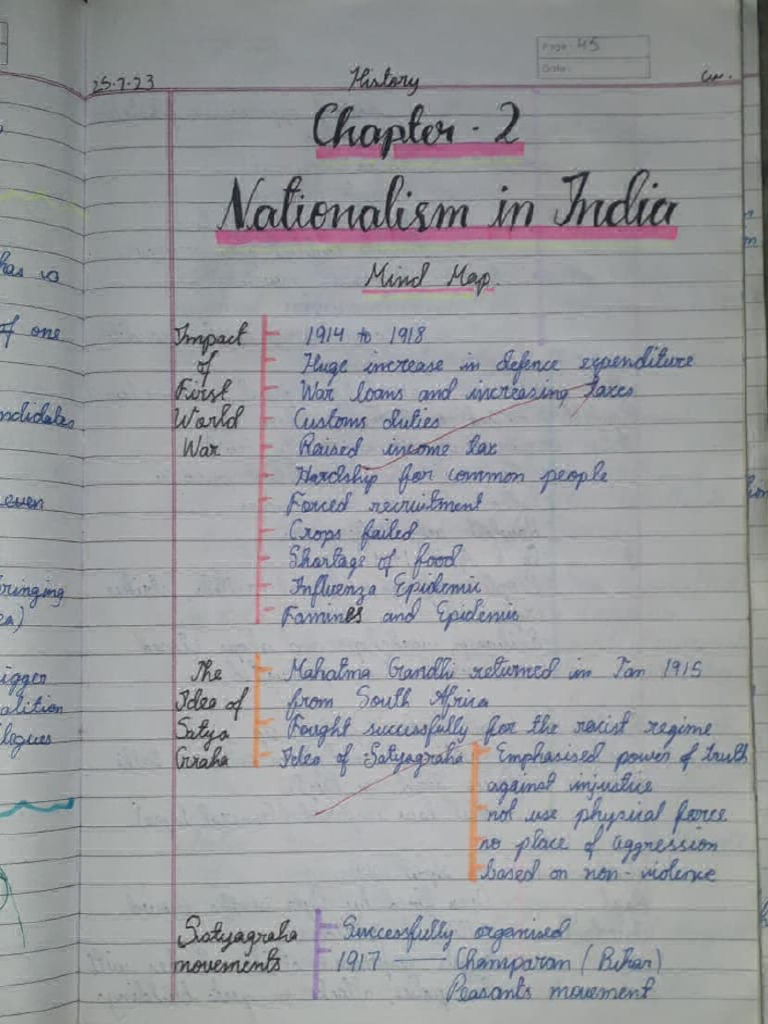 Page: 45
Date:
25-7-23 History Cw.
Chapter - 2
Nationalism in India
Mind Map
Impact of First World War
1914 to 1918
Huge increase in defence expenditure
War loans and increasing taxes
Customs duties
Raised income tax
Hardship for common people
Forced recruitment
Crops failed
Shortage of food
Influenza Epidemic
Famines and Epidemic
The Idea of Satya Graha
Mahatma Gandhi returned in Jan 1915
from South Africa
Fought successfully for the racist regime
Idea of Satyagraha
Emphasised power of truth
against injustice
not use physical force
no place of aggression
based on non-violence
Satyagraha movements
Successfully organised
1917 — Champaran (Bihar)
Peasants movement
has
of one
ndidates
even
bringing
igger
alition
logues